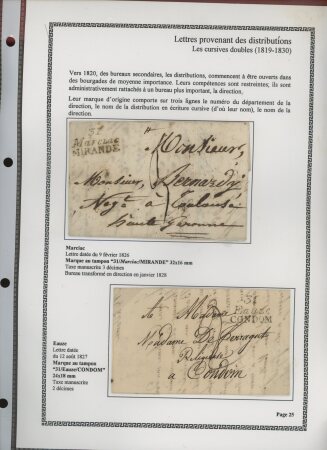 Lettres provenant des distributions
Les cursives doubles (1819-1830)
Vers 1820, des bureaux secondaires, les distributions, commencent à être ouverts dans
des bourgades de moyenne importance. Leurs compétences sont restreintes; ils sont
administrativement rattachés à un bureau plus important, la direction.
Leur marque d'origine comporte sur trois lignes le numéro du département de la
direction, le nom de la distribution en écriture cursive (d'où leur nom), le nom de la
direction.
31
Marciac
MIRANDE
Monsieur,
Monsieur Bernardy
Négt à Toulouse
haute Garonne
Marciac
Lettre datée du 9 février 1826
Marque au tampon "31/Marciac/MIRANDE" 32x16 mm
Taxe manuscrite 3 décimes
Bureau transformé en direction en janvier 1828
31
Eauze
CONDOM
Madame
Madame De
Religieuse
à Condom
Eauze
Lettre datée
du 12 août 1827
Marque au tampon
"31/Eauze/CONDOM"
24x18 mm
Taxe manuscrite
2 décimes
Page 25